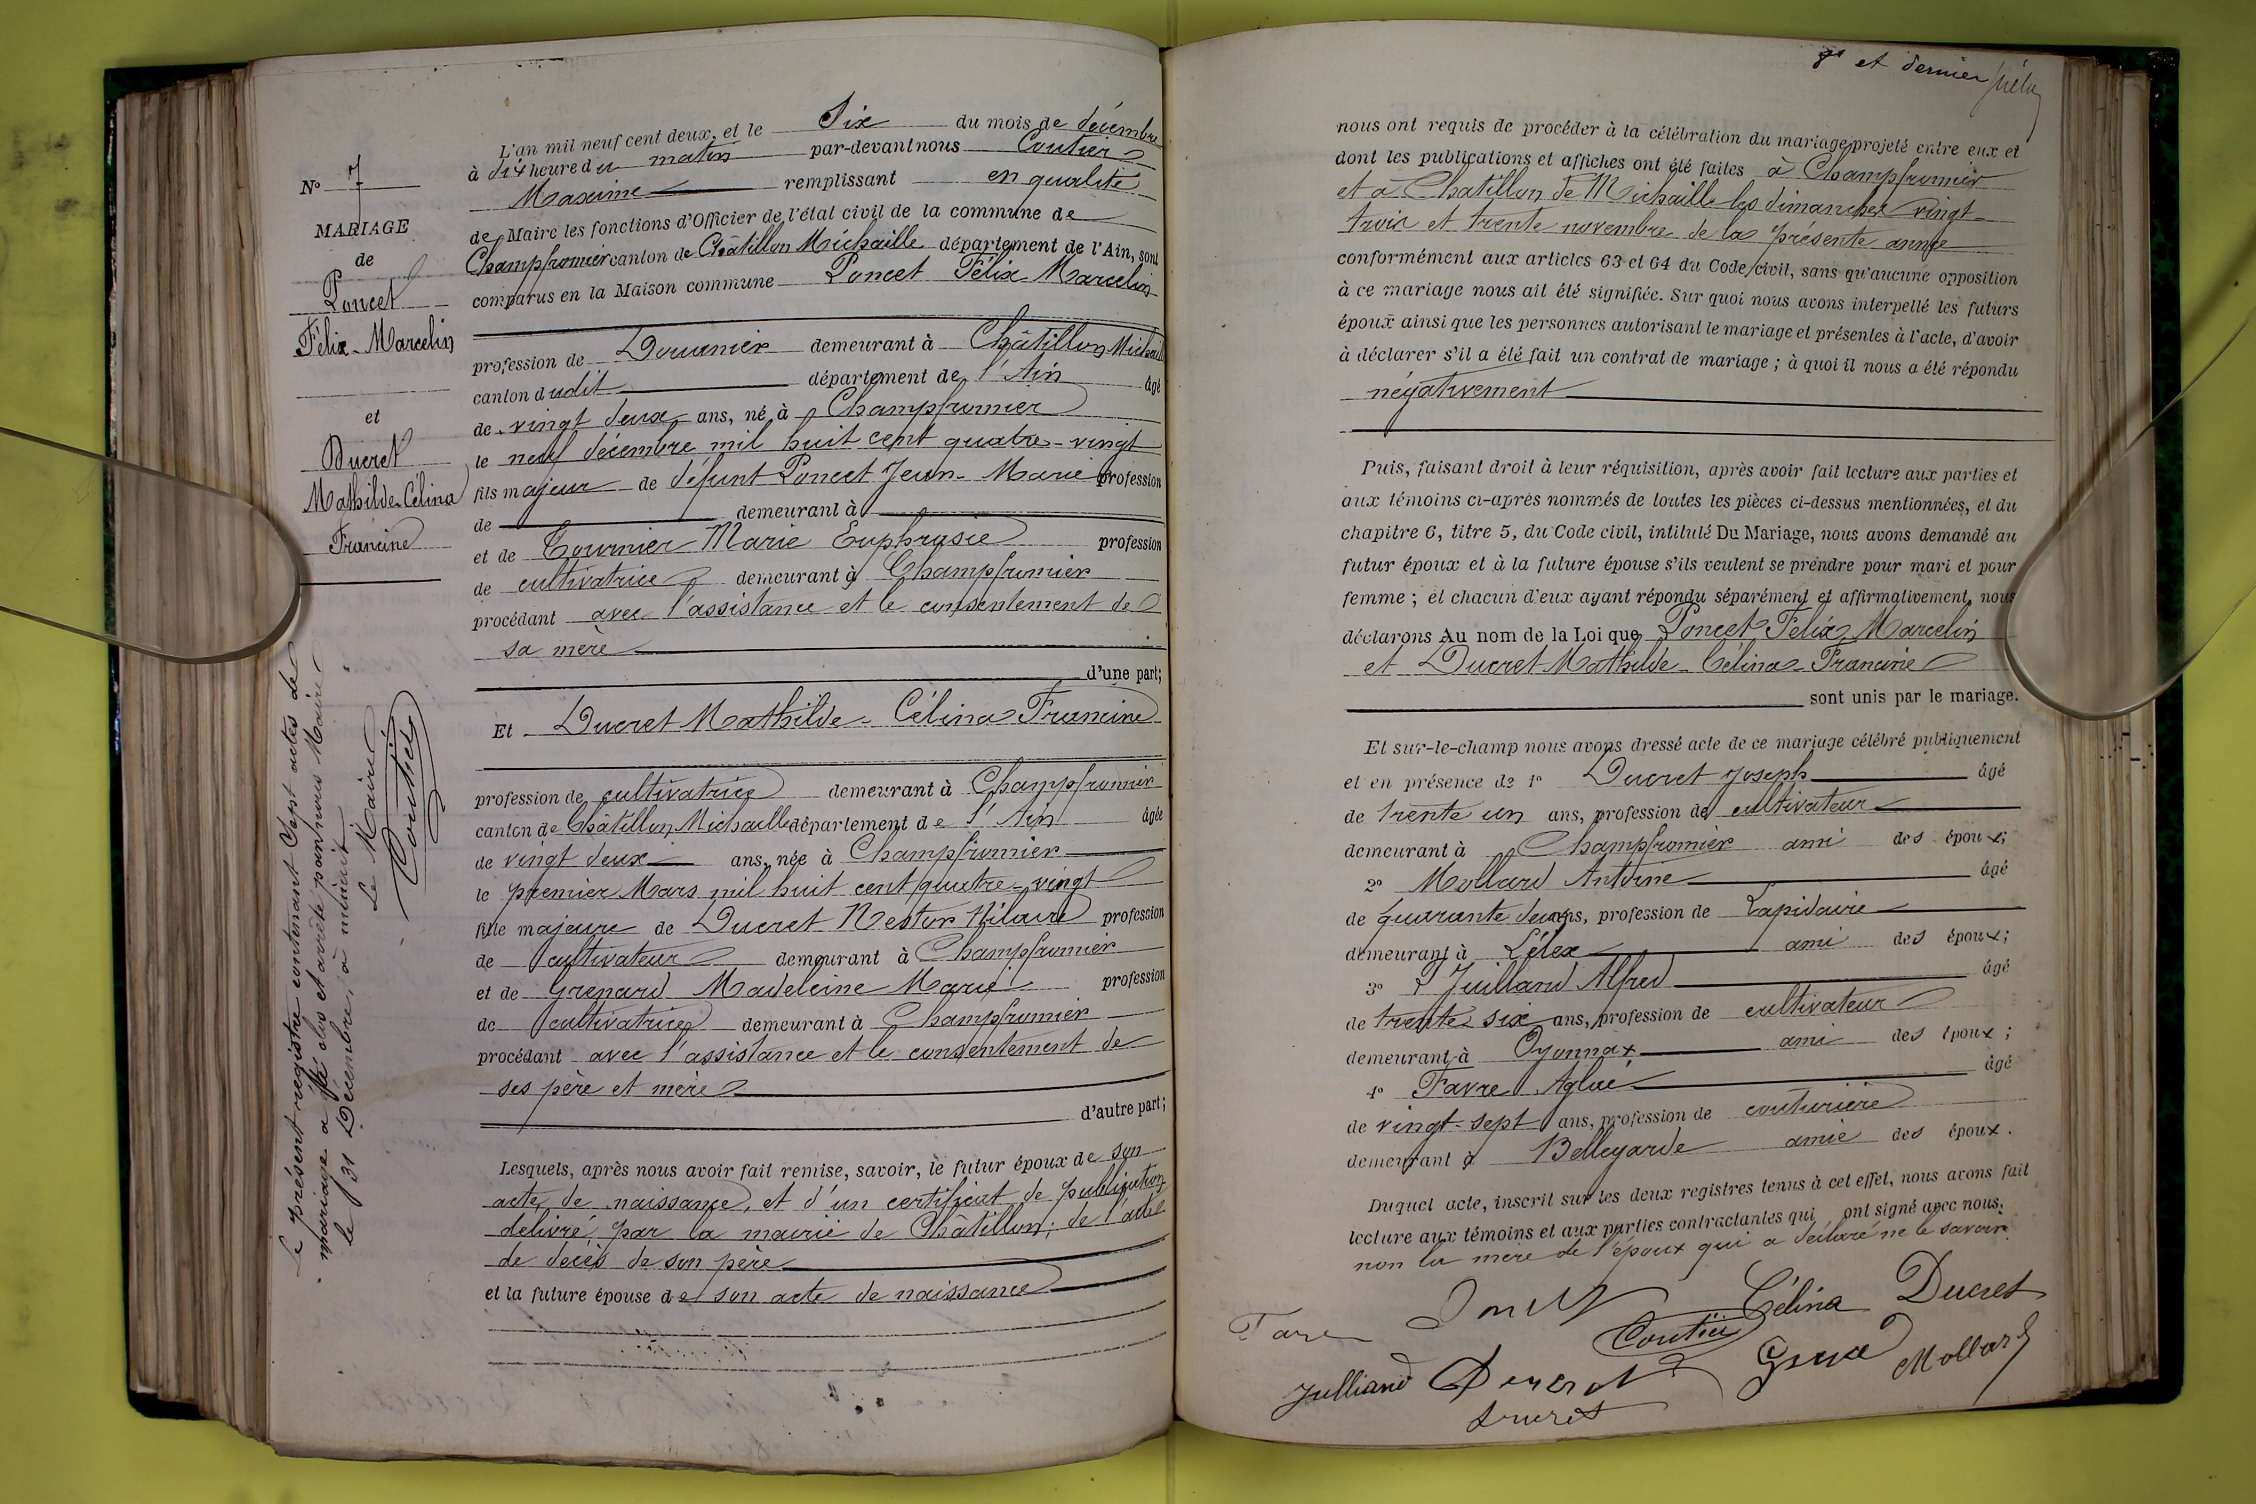 N° 7
MARIAGE
de
Poncet
Félix-Marcelin
et
Ducret
Mathilde-Célina
Francine
Le présent registre contenant Sept actes de
mariage a été clos et arrêté par nous Maire
le 31 Décembre, à minuit
Le Maire
Coutier
L'an mil neuf cent deux, et le Six du mois de décembre
à dix heure du matin par-devant nous Coutier
Maxime remplissant en qualité
de Maire les fonctions d'Officier de l'état civil de la commune de
Champfromier canton de Châtillon Michaille département de l'Ain, sont
comparus en la Maison commune Poncet Félix Marcelin
profession de Douanier demeurant à Châtillon Michaille
canton dudit département de l'Ain âgé
de vingt deux ans, né à Champfromier
le neuf décembre mil huit cent quatre-vingt
fils majeur de défunt Poncet Jean-Marie profession
de demeurant à
et de Tournier Marie Euphrasie profession
de cultivatrice demeurant à Champfromier
procédant avec l'assistance et le consentement de
sa mère
d'une part;
Et Ducret Mathilde-Célina Francine
profession de cultivatrice demeurant à Champfromier
canton de Châtillon Michaille département de l'Ain âgée
de vingt deux ans, née à Champfromier
le premier Mars mil huit cent quatre-vingt
fille majeure de Ducret Nestor Hilaire profession
de cultivateur demeurant à Champfromier
et de Grenard Madeleine Marie profession
de cultivatrice demeurant à Champfromier
procédant avec l'assistance et le consentement de
ses père et mère
d'autre part;
Lesquels, après nous avoir fait remise, savoir, le futur époux de son
acte de naissance, et d'un certificat de publication
délivré par la mairie de Châtillon; de l'acte
de décès de son père
et la future épouse de son acte de naissance
et dernier
nous ont requis de procéder à la célébration du mariage projeté entre eux et
dont les publications et affiches ont été faites à Champfromier
et à Chatillon de Michaille les dimanches vingt-
trois et trente novembre de la présente année
conformément aux articles 63 et 64 du Code civil, sans qu'aucune opposition
à ce mariage nous ait été signifiée. Sur quoi nous avons interpellé les futurs
époux ainsi que les personnes autorisant le mariage et présentes à l'acte, d'avoir
à déclarer s'il a été fait un contrat de mariage; à quoi il nous a été répondu
négativement
Puis, faisant droit à leur réquisition, après avoir fait lecture aux parties et
aux témoins ci-après nommés de toutes les pièces ci-dessus mentionnées, et du
chapitre 6, titre 5, du Code civil, intitulé Du Mariage, nous avons demandé au
futur époux et à la future épouse s'ils veulent se prendre pour mari et pour
femme; et chacun d'eux ayant répondu séparément et affirmativement, nous
déclarons Au nom de la Loi que Poncet Félix Marcelin
et Ducret Mathilde-Célina-Francine
sont unis par le mariage.
Et sur-le-champ nous avons dressé acte de ce mariage célébré publiquement
et en présence de 1° Ducret Joseph âgé
de trente un ans, profession de cultivateur
demeurant à Champfromier ami des époux;
2° Mollard Antoine âgé
de quarante deux ans, profession de Lapidaire
demeurant à Lélex ami des époux;
3° Juilland Alfred âgé
de trente six ans, profession de cultivateur
demeurant à Oyonnax ami des époux;
4° Favre Aglaé âgé
de vingt-sept ans, profession de couturière
demeurant à Bellegarde amie des époux.
Duquel acte, inscrit sur les deux registres tenus à cet effet, nous avons fait
lecture aux témoins et aux parties contractantes qui ont signé avec nous.
non la mère de l'époux qui a déclaré ne le savoir.
Célina Ducret
Coutier
Julliand Ducret Mollard
Ducret